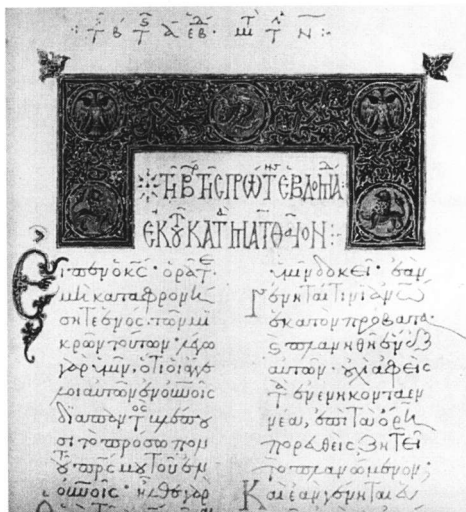 τῇ β τῆς πρώτ ἑβδομάδ
ἐκ τοῦ κατὰ ματθαῖον
Εἶπεν ὁ κς· ὁρᾶτε
μὴ καταφρονή
σητε ἑνὸς τῶν μι
κρῶν τούτων· λέγω
γὰρ ὑμῖν, ὅτι οἱ ἄγγε
λοι αὐτῶν ἐν οὐνοῖς
διαπαντὸς βλέπου
σι τὸ πρόσωπον
τοῦ πρς μου τοῦ ἐν
οὐνοῖς· ἦλθε γὰρ
ὑμῖν δοκεῖ· ἐὰν
γένηται τινὶ ἀνω
ἑκατὸν πρόβατα·
καὶ πλανηθῇ ἓν ἐξ
αὐτῶν· οὐχὶ ἀφεὶς
τὰ ἐνενηκονταεν
νέα, ἐπὶ τὰ ὄρη
πορευθεὶς ζητεῖ
τὸ πλανώμενον·
Καὶ ἐὰν γένηται εὑ